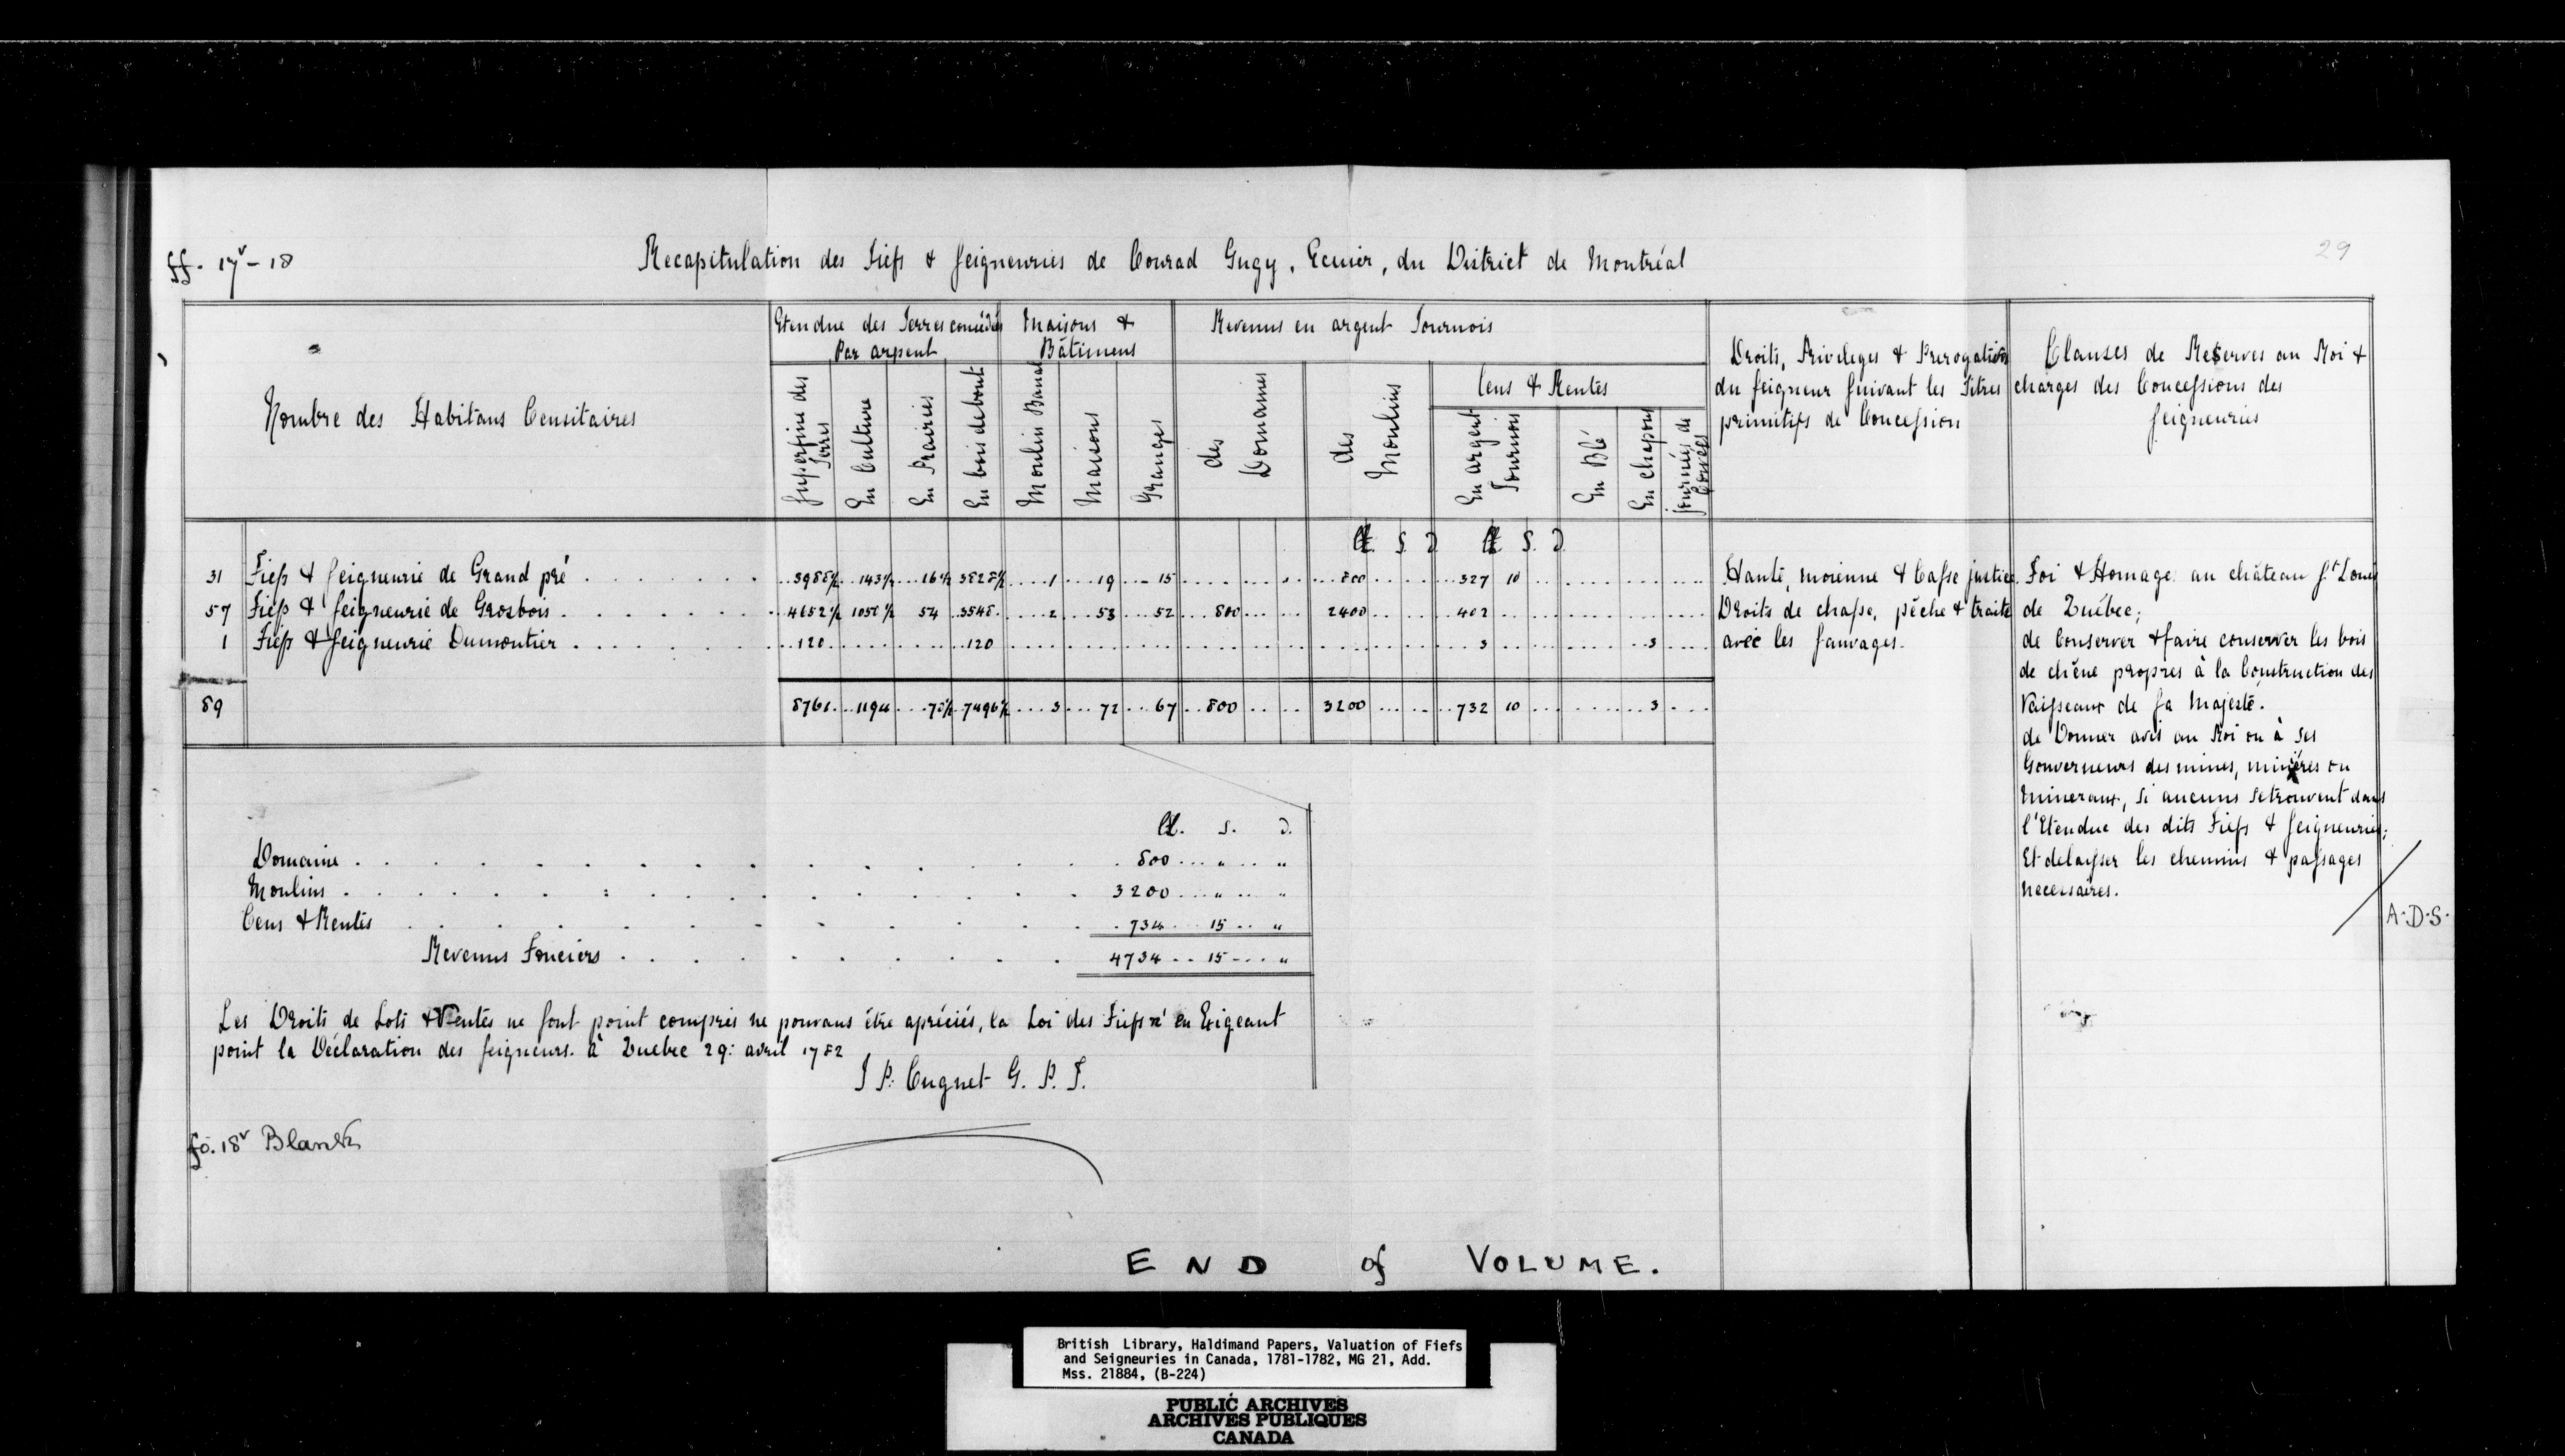 29
ff. 17v - 18
Recapitulation des Fiefs & seigneuries de Conrad Gugy, Ecuier, du District de Montréal
Nombre des Habitans Censitaires
Etendue des Terres concédées
Par arpent
Superfine des Terres
En Culture
En Prairies
En bois debout
Maisons &
Bâtimens
Moulin Banal
Maisons
Granges
Revenus en argent Tournois
des Domaines
des Moulins
Cens & Rentes
En argent Tournois
En Blé
En chapons
journées de Corvées
Droits, Privileges & Prerogatives
du seigneur suivant les Titres
primitifs de Concession
Clauses de Reserves au Roi &
charges des Concessions des
seigneuries
₶ S D ₶ S. D
31 Fiefs & seigneurie de Grand pré 3988½ 143½ 16½ 3828½ 1 19 15 800 327 10
57 Fiefs & seigneurie de Grosbois 4652½ 1050½ 54 3548 2 53 52 800 2400 402
1 Fiefs & seigneurie Dumontier 120 120 3 3
89 8761 1194 70½ 7496½ 3 72 67 800 3200 732 10 3
Haute, moienne & Basse justice
Droits de chasse, pêche & traite
avec les sauvages.
Foi & Homage au château St Louis
de Québec;
de Conserver & faire conserver les bois
de chêne propres à la Construction des
Vaisseaux de sa Majesté.
de Donner avis au Roi ou à ses
Gouverneurs des mines, minières ou
Mineraux, si aucuns se trouvent dans
l'Etendue des dits Fiefs & seigneuries;
Et delaisser les chemins & passages
necessaires.
A.D.S.
₶. S. D.
Domaine 800 " "
Moulins 3200 " "
Cens & Rentes 734 15 "
Revenus Fonciers 4734 15 "
Les Droits de Lots & Ventes ne sont point compris ne pouvans être apréciés, la Loi des Fiefs n'en Exigeant
point la Déclaration des seigneurs. à Quebec 29: avril 1782
J P. Cugnet G. P. T.
fo. 18v Blank
END of VOLUME.
British Library, Haldimand Papers, Valuation of Fiefs
and Seigneuries in Canada, 1781-1782, MG 21, Add.
Mss. 21884, (B-224)
PUBLIC ARCHIVES
ARCHIVES PUBLIQUES
CANADA